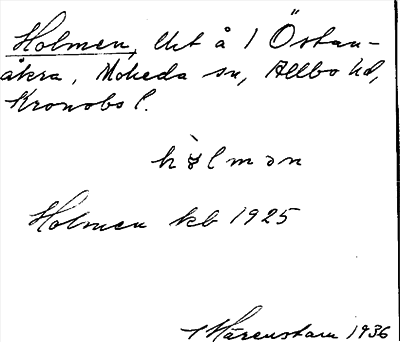 Holmen, Urt å 1 Östan-
åkra, Moheda sn, Allbo hd,
Kronobs l.
Holmen kb 1925
Härenstam 1936